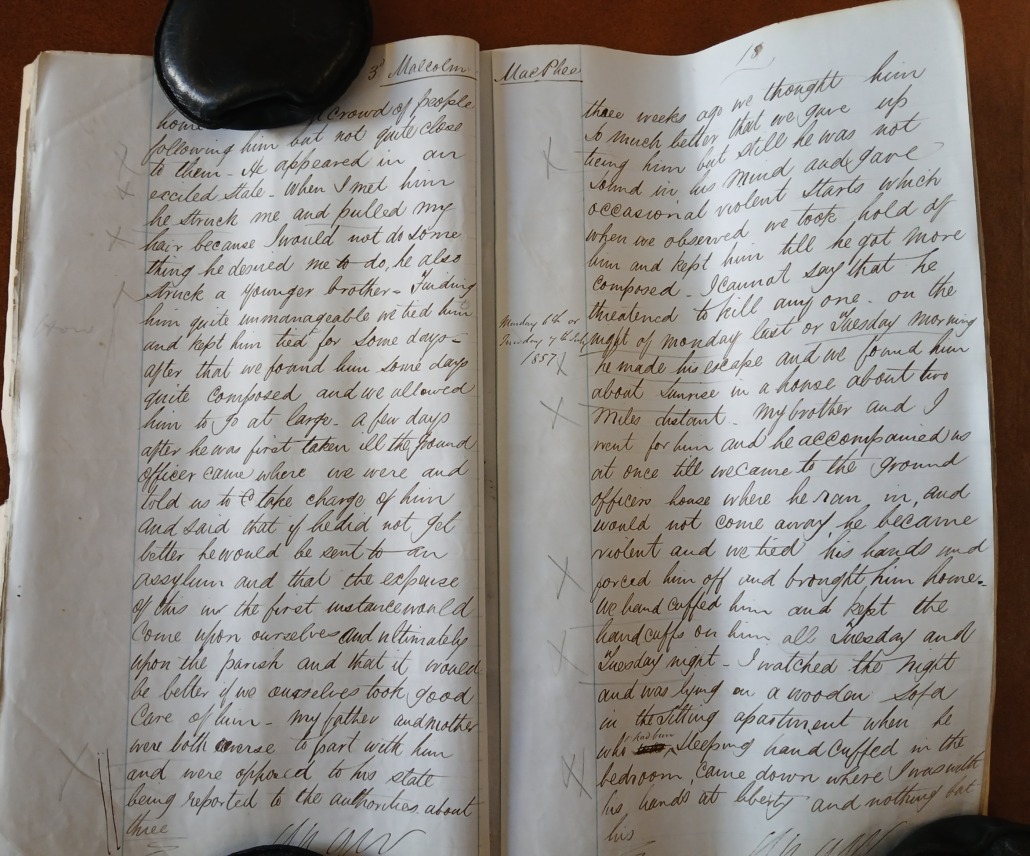 3d Malcolm
home crowd of people
following him but not quite close
to them - He appeared in an
excited state - When I met him
he struck me and pulled my
hair because I would not do some
thing he desired me to do, he also
struck a younger brother - Finding
him quite unmanageable we tied him
and kept him tied for some days -
after that we found him some days
quite composed and we allowed
him to go at large - a few days
after he was first taken ill the ground
officer came where we were and
told us to take charge of him
and said that if he did not get
better he would be sent to an
assylum and that the expense
of this in the first instance would
come upon ourselves and ultimately
upon the parish and that it would
be better if we ourselves took good
care of him - my father and mother
were both averse to part with him
and were opposed to his state
being reported to the authorities about
three
MacPhee
18
three weeks ago we thought him
so much better that we gave up
tieing him but still he was not
sound in his mind and gave
occasional violent starts which
when we observed we took hold of
him and kept him till he got more
composed - I cannot say that he
threatened to kill any one - on the
Monday 6th or
Tuesday 7th July
1857
night of Monday last or Tuesday morning
he made his escape and we found him
about sunrise in a house about two
miles distant - My brother and I
went for him and he accompanied us
at once till we came to the ground
officers house where he ran in, and
would not come away he became
violent and we tied his hands and
forced him off and brought him home -
We hand cuffed him and kept the
handcuffs on him all Tuesday and
Tuesday night - I watched the night
and was lying on a wooden sofa
in the sitting apartment when he
who had been sleeping hand cuffed in the
bedroom, came down where I was with
his hands at liberty and nothing but
his